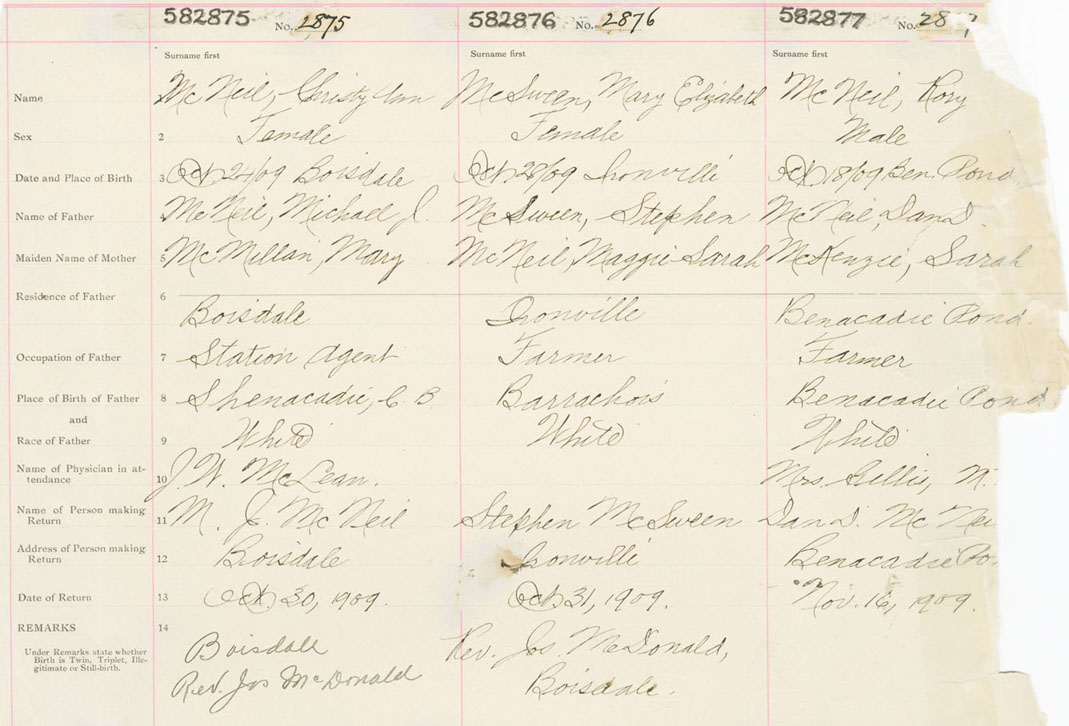 582875 No. 2875 582876 No. 2876 582877 No. 28
Surname first Surname first Surname first
Name McNeil, Christy Ann McSween, Mary Elizabeth McNeil, Rory
Sex 2 Female Female Male
Date and Place of Birth 3 Oct 24/09 Boisdale Oct 28/09 Ironville Oct 18/09 Ben. Pond
Name of Father McNeil, Michael J. McSween, Stephen McNeil, Dan D.
Maiden Name of Mother 5 McMillan, Mary McNeil, Maggie Sarah McKenzie, Sarah
Residence of Father 6
Boisdale Ironville Benacadie Pond.
Occupation of Father 7 Station Agent Farmer Farmer
Place of Birth of Father 8 Shenacadie, C. B. Barrachois Benacadie Pond
and
Race of Father 9 White White White
Name of Physician in at-
tendance 10 J. W. McLean. Mrs. Gillis, N.
Name of Person making
Return 11 M. J. McNeil Stephen McSween Dan D. McNei
Address of Person making
Return 12 Boisdale Ironville Benacadie Po
Date of Return 13 Oct 30, 1909. Oct 31, 1909. Nov. 16, 1909.
REMARKS 14
Under Remarks state whether
Birth is Twin, Triplet, Ille-
gitimate or Still-birth.
Boisdale Rev. Jos. McDonald,
Rev. Jos McDonald Boisdale.